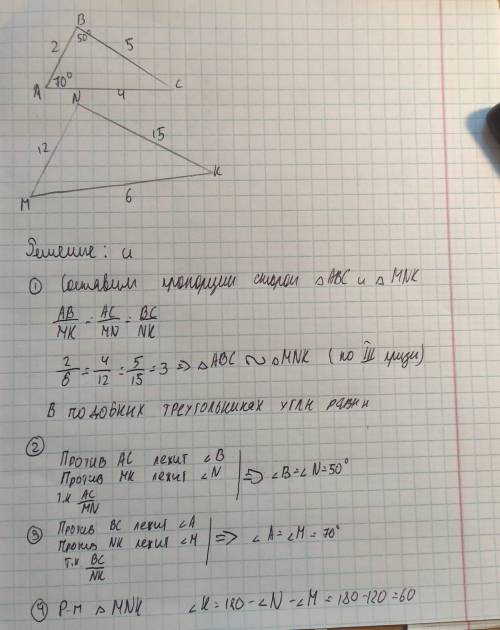 B
2 50° 5
A 70° 4 C
N
12 15
K
M 6
Решение:
① Составим пропорции сторон △ABC и △MNK
AB/MK = AC/MN = BC/NK
2/6 = 4/12 = 5/15 = 3 => △ABC ~ △MNK (по III призн)
В подобных треугольниках углы равны
②
Против AC лежит ∠B
Против MK лежит ∠N => ∠B = ∠N = 50°
т.к AC/MN
③ Против BC лежит ∠A
Против NK лежит ∠M => ∠A = ∠M = 70°
т.к BC/NK
④ Р-м △MNK ∠K = 180 - ∠N - ∠M = 180 - 120 = 60